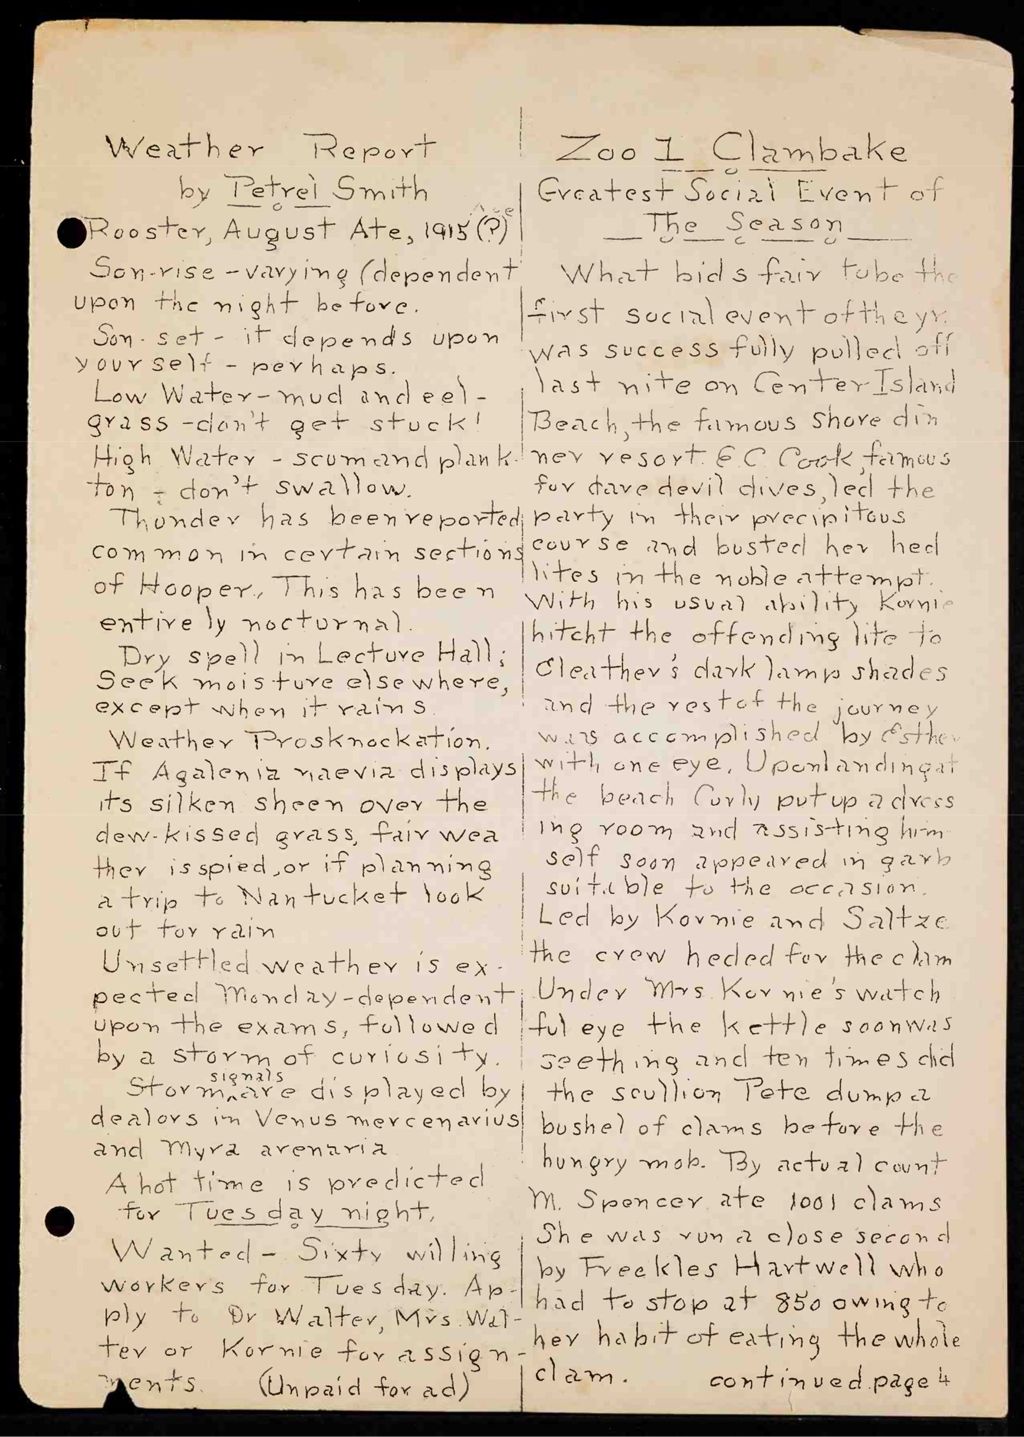 Weather Report
by Petrel Smith
Rooster, August Ate, 1915 (?)
Son-rise - varying (dependent
upon the night before.
Son-set - it depends upon
yourself - perhaps.
Low Water - mud and eel-
grass - don't get stuck!
High Water - scum and plank-
ton - don't swallow.
Thunder has been reported
common in certain sections
of Hooper. This has been
entirely nocturnal.
Dry spell in Lecture Hall;
Seek moisture elsewhere,
except when it rains.
Weather Prosknockation.
If Agalenia naevia displays
its silken sheen over the
dew-kissed grass, fair wea
ther is spied, or if planning
a trip to Nantucket look
out for rain
Unsettled weather is ex-
pected Monday - dependent
upon the exams, followed
by a storm of curiosity.
Storm signals are displayed by
dealors in Venus mercenarius
and Myra arenaria
A hot time is predicted
for Tuesday night.
Wanted - Sixty willing
workers for Tuesday. Ap-
ply to Dr Walter, Mrs. Wal-
ter or Kornie for assign-
ments. (Unpaid for ad)
Zoo I Clambake
Greatest Social Event of
The Season
What bids fair tube the
first social event of the yr.
was successfully pulled off
last nite on Center Island
Beach, the famous shore din
ner resort. E C Cook, famous
for dare devil dives, led the
party in their precipitous
course and busted her hed
lites in the noble attempt.
With his usual ability Kornie
hitcht the offending lite to
Cleather's dark lamp shades
and the rest of the journey
was accomplished by Esther
with one eye. Upon landing at
the beach Curly put up a dress
ing room and assisting him
self soon appeared in garb
suitable to the occasion.
Led by Kornie and Saltze
the crew heded for the clam
Under Mrs. Kornie's watch
ful eye the kettle soon was
seething and ten times did
the scullion Pete dump a
bushel of clams before the
hungry mob. By actual count
M. Spencer ate 1001 clams
She was run a close second
by Freckles Hartwell who
had to stop at 850 owing to
her habit of eating the whole
clam. continued page 4